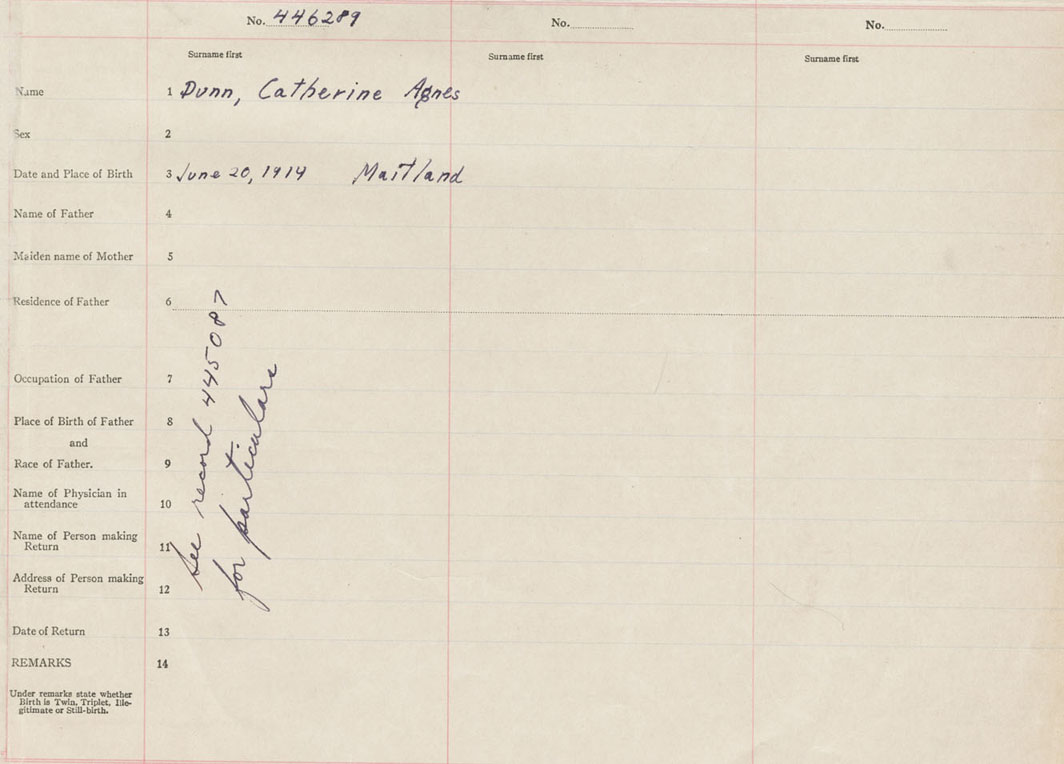 No. 446289 No. No.
Surname first Surname first Surname first
Name 1 Dunn, Catherine Agnes
Sex 2
Date and Place of Birth 3 June 20, 1914 Maitland
Name of Father 4
Maiden name of Mother 5
Residence of Father 6
Occupation of Father 7
Place of Birth of Father 8
and
Race of Father. 9
Name of Physician in
attendance 10
Name of Person making
Return 11
Address of Person making
Return 12
Date of Return 13
REMARKS 14
Under remarks state whether
Birth is Twin, Triplet, Ille-
gitimate or Still-birth.
See record 445087
for particulars